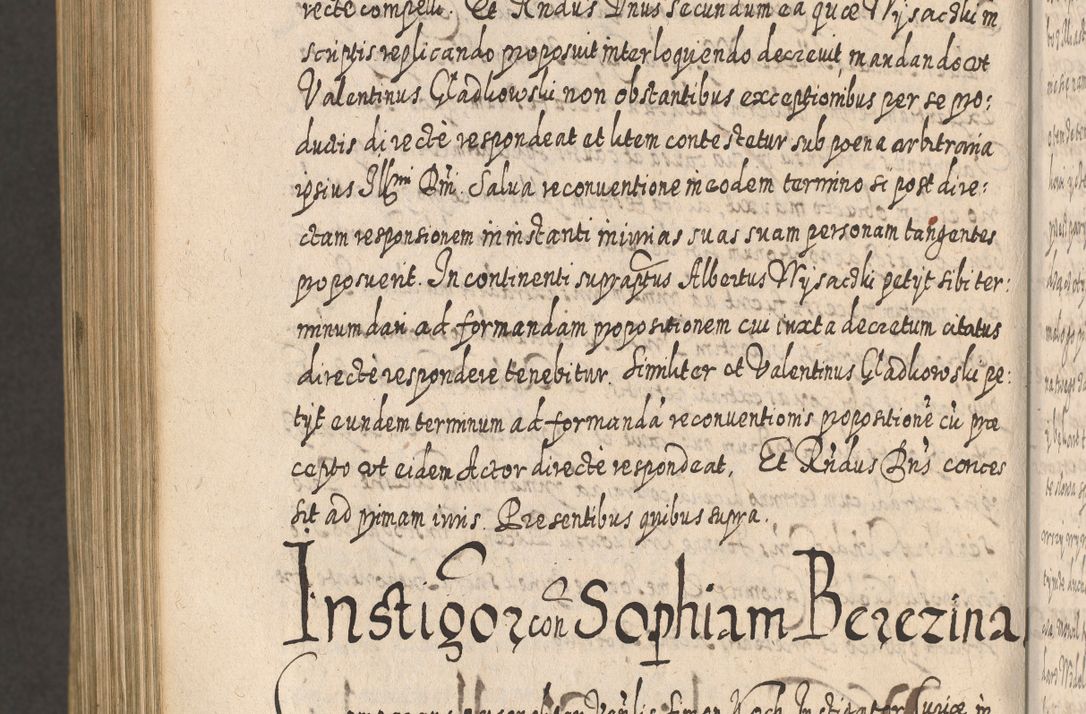 recte compelli. Et Rndus Dnus secundum ea quæ Wysachki in
scriptis replicando proposuit interloquendo decrevit, mandando vt
Valentinus Gladkowski non obstantibus exceptionibus per se pro:
ductis directè respondeat et litem contestetur sub poena arbitraria
ipsius Illmi Dni. Salua reconuentione in eodem termino si post dire:
ctam responsionem in instanti iniurias suas suam personam tangentes
proposuerit. In continenti supraptus Albertus Wysachki petijt sibi ter:
minum dari ad formandam propositionem cui iuxta decretum citatus
directè respondere tenebitur. Similiter et Valentinus Gladkowski pe:
tijt eundem terminum ad formandā reconuentionis propositionē cū præ
cepto vt eidem Actor directè respondeat. Et Rndus Dns conces
sit ad primam iuris. Presentibus quibus supra.
Instigor con Sophiam Berezina
Simon Koch Instigator Curiæ in